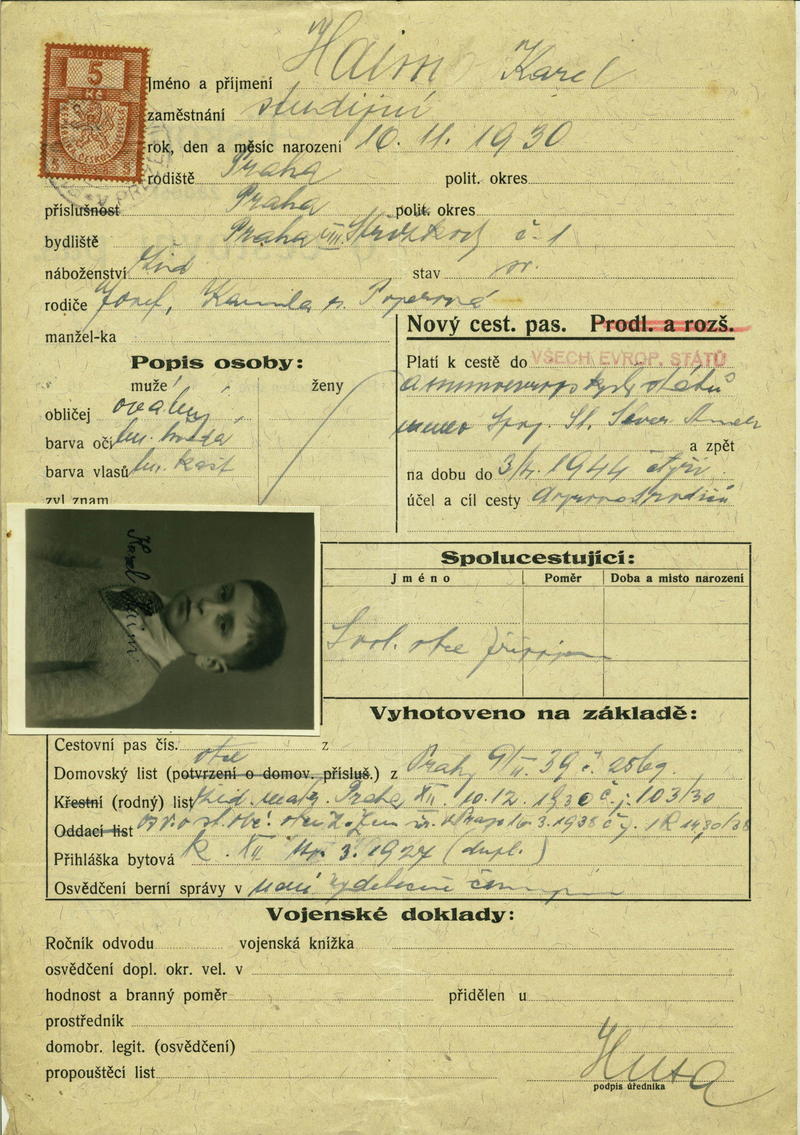 KOLEK
5
Kč
Haim Karel
Jméno a příjmení
zaměstnání studijní
rok, den a měsíc narození 10. 11. 1930
rodiště Praha polit. okres
příslušnost Praha polit. okres
bydliště Praha VIII č. 1
náboženství žid stav sv.
rodiče Josef, Kamila r. Poperová
manžel-ka
Nový cest. pas. Prodl. a rozš.
Popis osoby:
muže ženy
obličej oválný
barva očí tm. hnědá
barva vlasů tm. kašt
zvl. znam.
Platí k cestě do VŠECH EVROP. STÁTŮ
států
Spoj. St. Sever. Amer
a zpět
na dobu do 1944 čtyři
účel a cíl cesty
Karel Haim
Spolucestující:
Jméno Poměr Doba a místo narození
Svol. otce připojen
Vyhotoveno na základě:
Cestovní pas čís. z
otce
Domovský list (potvrzení o domov. přísluš.) z Prahy 9/II. 39 č. 2569.
Křestní (rodný) list žid. mat. Praha XII. 10.12. 1930 č. j. 103/30
Oddací list
Přihláška bytová k. XII 3. 1927 (dupl.)
Osvědčení berní správy v není výdělečně
Vojenské doklady:
Ročník odvodu vojenská knížka
osvědčení dopl. okr. vel. v
hodnost a branný poměr přidělen u
prostředník
domobr. legit. (osvědčení)
propouštěcí list
podpis úředníka